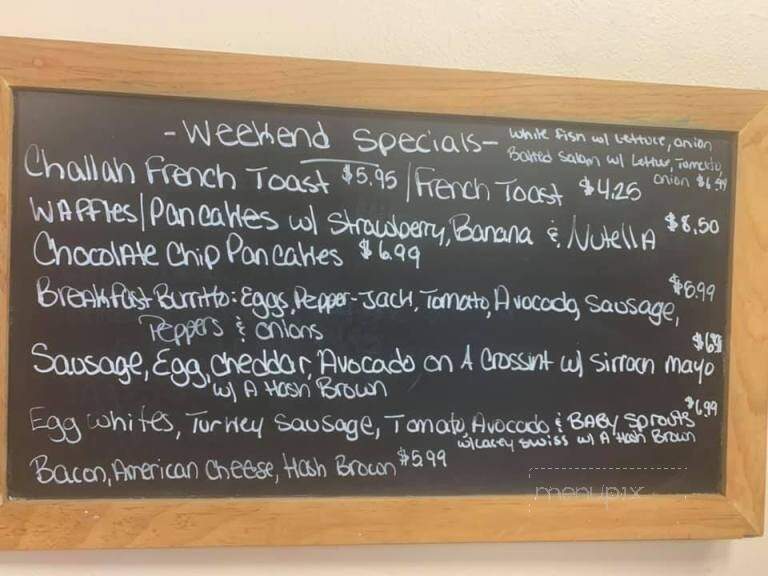 -Weekend Specials-
White Fish w/ Lettuce, onion
Baked Salmn w/ Lettuc, Tomato,
onion $6.99
Challah French Toast $5.95 / French Toast $4.25
Waffles/Pancakes w/ Strawberry, Banana & Nutella $8.50
Chocolate Chip Pancakes $6.99
Breakfast Burrito: Eggs, Pepper-Jack, Tomato, Avocado, Sausage, $6.99
Peppers & onions
Sausage, Egg, cheddar, Avocado on A Crossint w/ Sirrach mayo
w/ A Hash Brown
Egg whites, Turkey Sausage, Tomato, Avocado & BABY Sprouts $6.99
w/Lacey Swiss w/ A Hash Brown
Bacon, American Cheese, Hash Brown $5.99
menupix